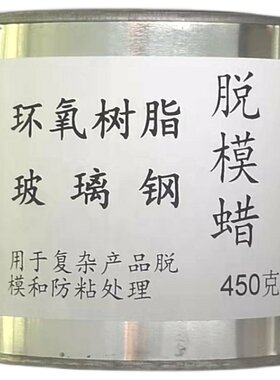 环氧树脂
玻璃钢
用于复杂产品脱
模和防粘处理
脱模蜡
450克